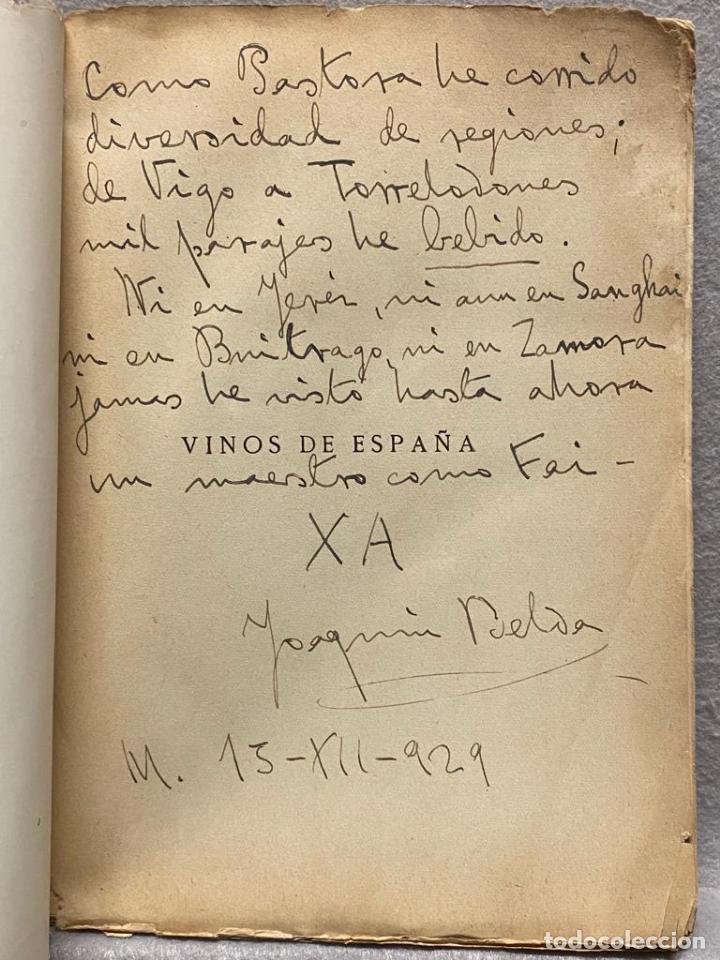 Como Pastora he corrido
diversidad de regiones;
de Vigo a Torrelodones
mil parajes he bebido.
Ni en Jerez, ni aun en Sanghai
ni en Buitrago, ni en Zamora
jamas he visto hasta ahora
VINOS DE ESPAÑA
un maestro como Fai-
XA
Joaquin Belda
M. 13-XII-929
todocoleccion
todocoleccion.net